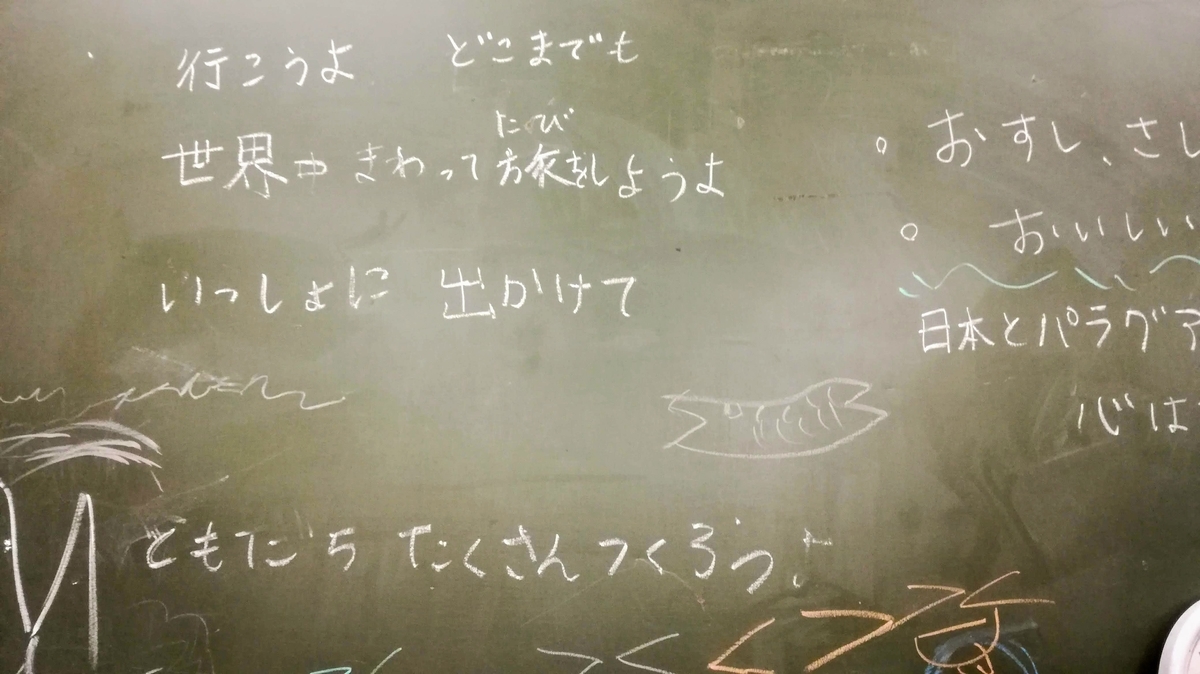 行こうよ どこまでも
たび
世界中 まわって 旅をしようよ
いっしょに 出かけて
ともだち たくさん つくろうよ
。おすし、さし
。おいしい
日本とパラグア
心は